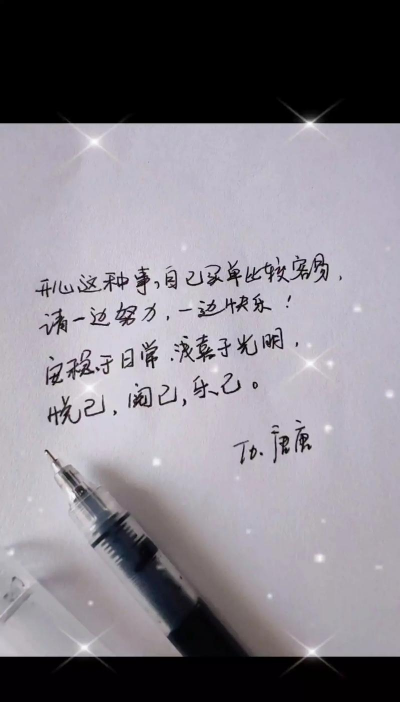 开心这种事，自己买单比较容易，
请一边努力，一边快乐！
安稳于日常，浅喜于光明，
悦己，阅己，乐己。
To. 唐唐